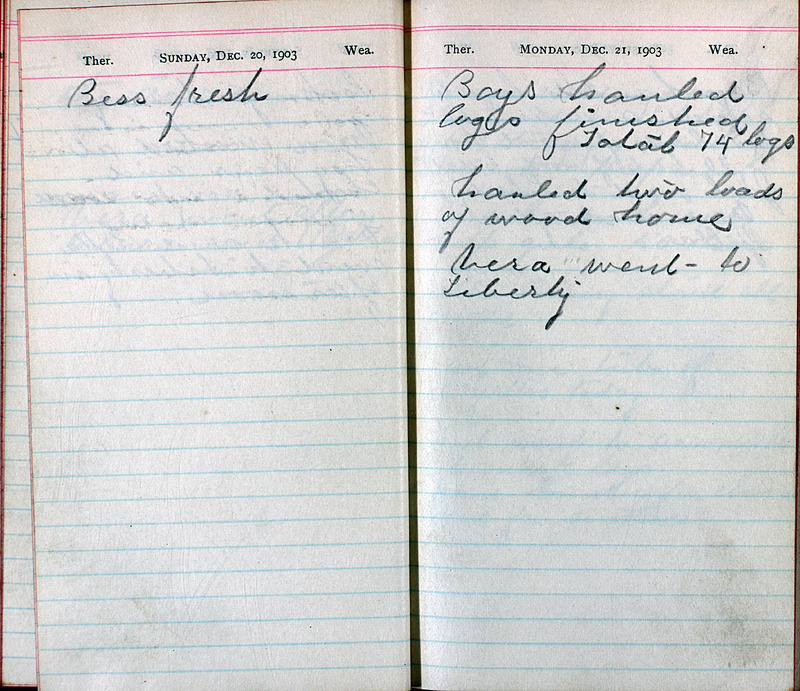 Ther. SUNDAY, DEC. 20, 1903 Wea.
Bess fresh
Ther. MONDAY, DEC. 21, 1903 Wea.
Boys hauled
logs finished
Total 74 logs
hauled two loads
of wood home
Vera went to
Liberty